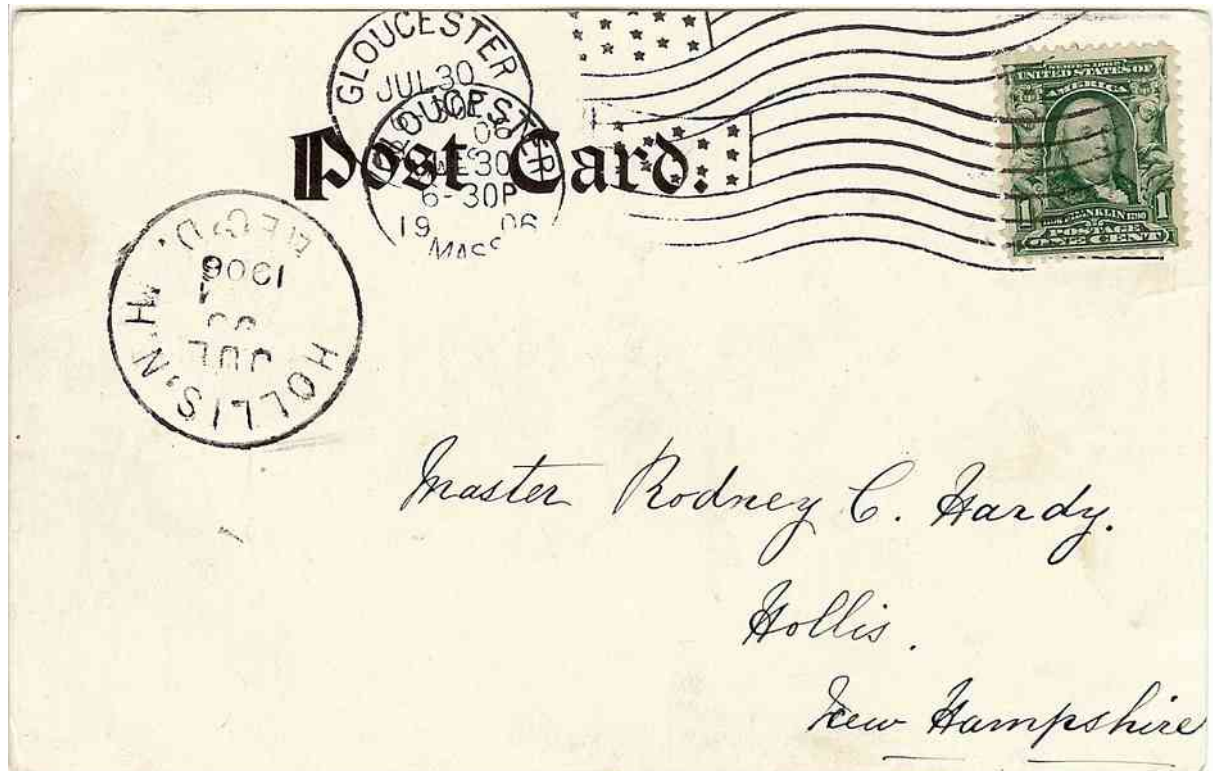 GLOUCESTER
JUL 30
GLOUCESTER
JUL 30
6-30P
19 06
MASS
Post Card.
UNITED STATES OF
AMERICA
1 FRANKLIN 1790 1
POSTAGE
ONE CENT
HOLLIS, N.H.
JUL
1906
REC'D.
Master Rodney C. Hardy.
Hollis.
New Hampshire